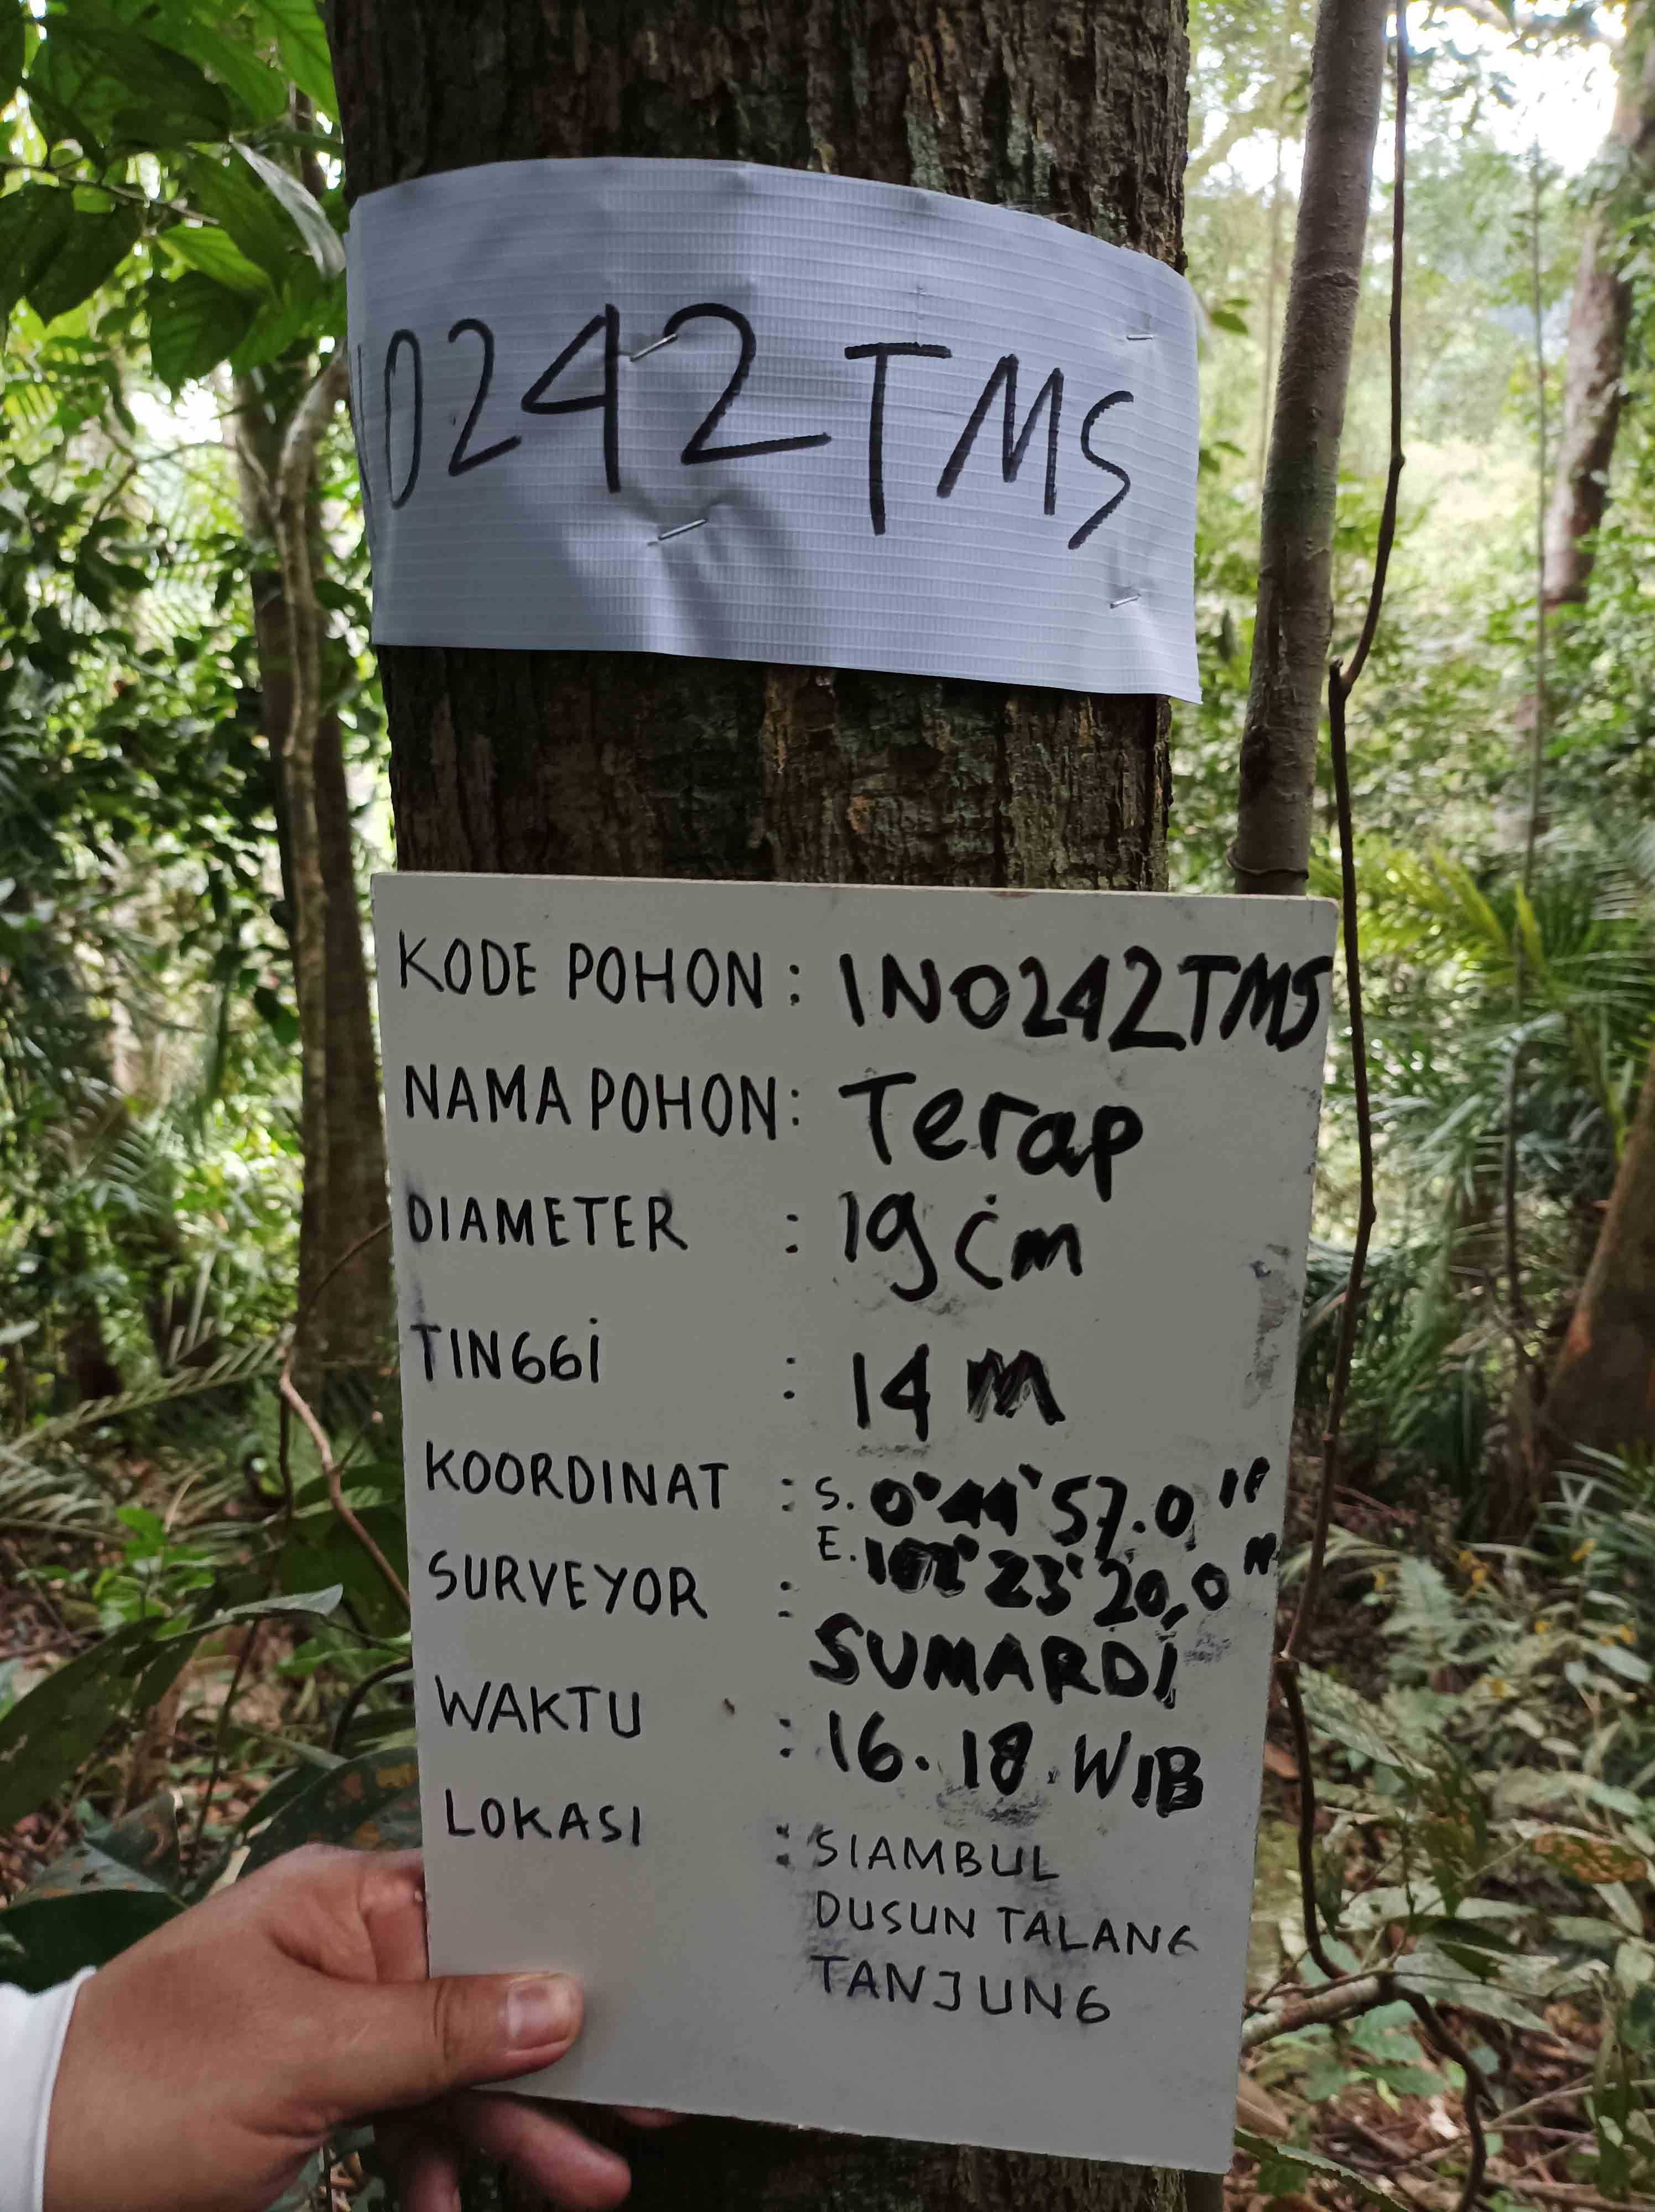 0242TMS
KODE POHON : IN0242TMS
NAMA POHON : Terap
DIAMETER : 19 cm
TINGGI : 14 M
KOORDINAT : S. 0°44'57.0"
E. 102°23'20,0"
SURVEYOR : SUMARDI
WAKTU : 16.18.WIB
LOKASI : SIAMBUL
DUSUN TALANG
TANJUNG